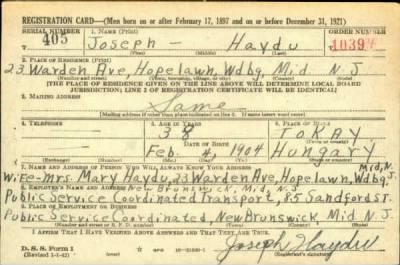 REGISTRATION CARD—(Men born on or after February 17, 1897 and on or before December 31, 1921)
SERIAL NUMBER 1. NAME (Print) ORDER NUMBER
405 Joseph – Haydu 10394
2. PLACE OF RESIDENCE (Print)
23 Warden Ave, Hopelawn, Wdbg, Mid. N.J.
(Number and street) (Town, township, village, or city) (County) (State)
[THE PLACE OF RESIDENCE GIVEN ON THE LINE ABOVE WILL DETERMINE LOCAL BOARD
JURISDICTION; LINE 2 OF REGISTRATION CERTIFICATE WILL BE IDENTICAL]
3. MAILING ADDRESS
Same
[Mailing address if other than place indicated on line 2. If same insert word same]
4. TELEPHONE 5. AGE IN YEARS 6. PLACE OF BIRTH
38 TOKAY
DATE OF BIRTH
Feb. 1904 Hungary
(Exchange) (Number) (Mo.) (Day) (Yr.) (State or country)
7. NAME AND ADDRESS OF PERSON WHO WILL ALWAYS KNOW YOUR ADDRESS Mid, N.J.
Wife-Mrs. Mary Haydu, 23 Warden Ave, Hopelawn, Wdbg.
8. EMPLOYER'S NAME AND ADDRESS New Brunswick, Mid, N.J.
Public Service Coordinated Transport, 85 Sandford ST.
9. PLACE OF EMPLOYMENT OR BUSINESS
Public Service Coordinated, New Brunswick, Mid. N.J.
(Number and street or R. F. D. number) (Town) (County) (State)
I AFFIRM THAT I HAVE VERIFIED ABOVE ANSWERS AND THAT THEY ARE TRUE.
D. S. S. Form 1
(Revised 1-1-42) (over)
Joseph Haydu
(Registrant's signature)